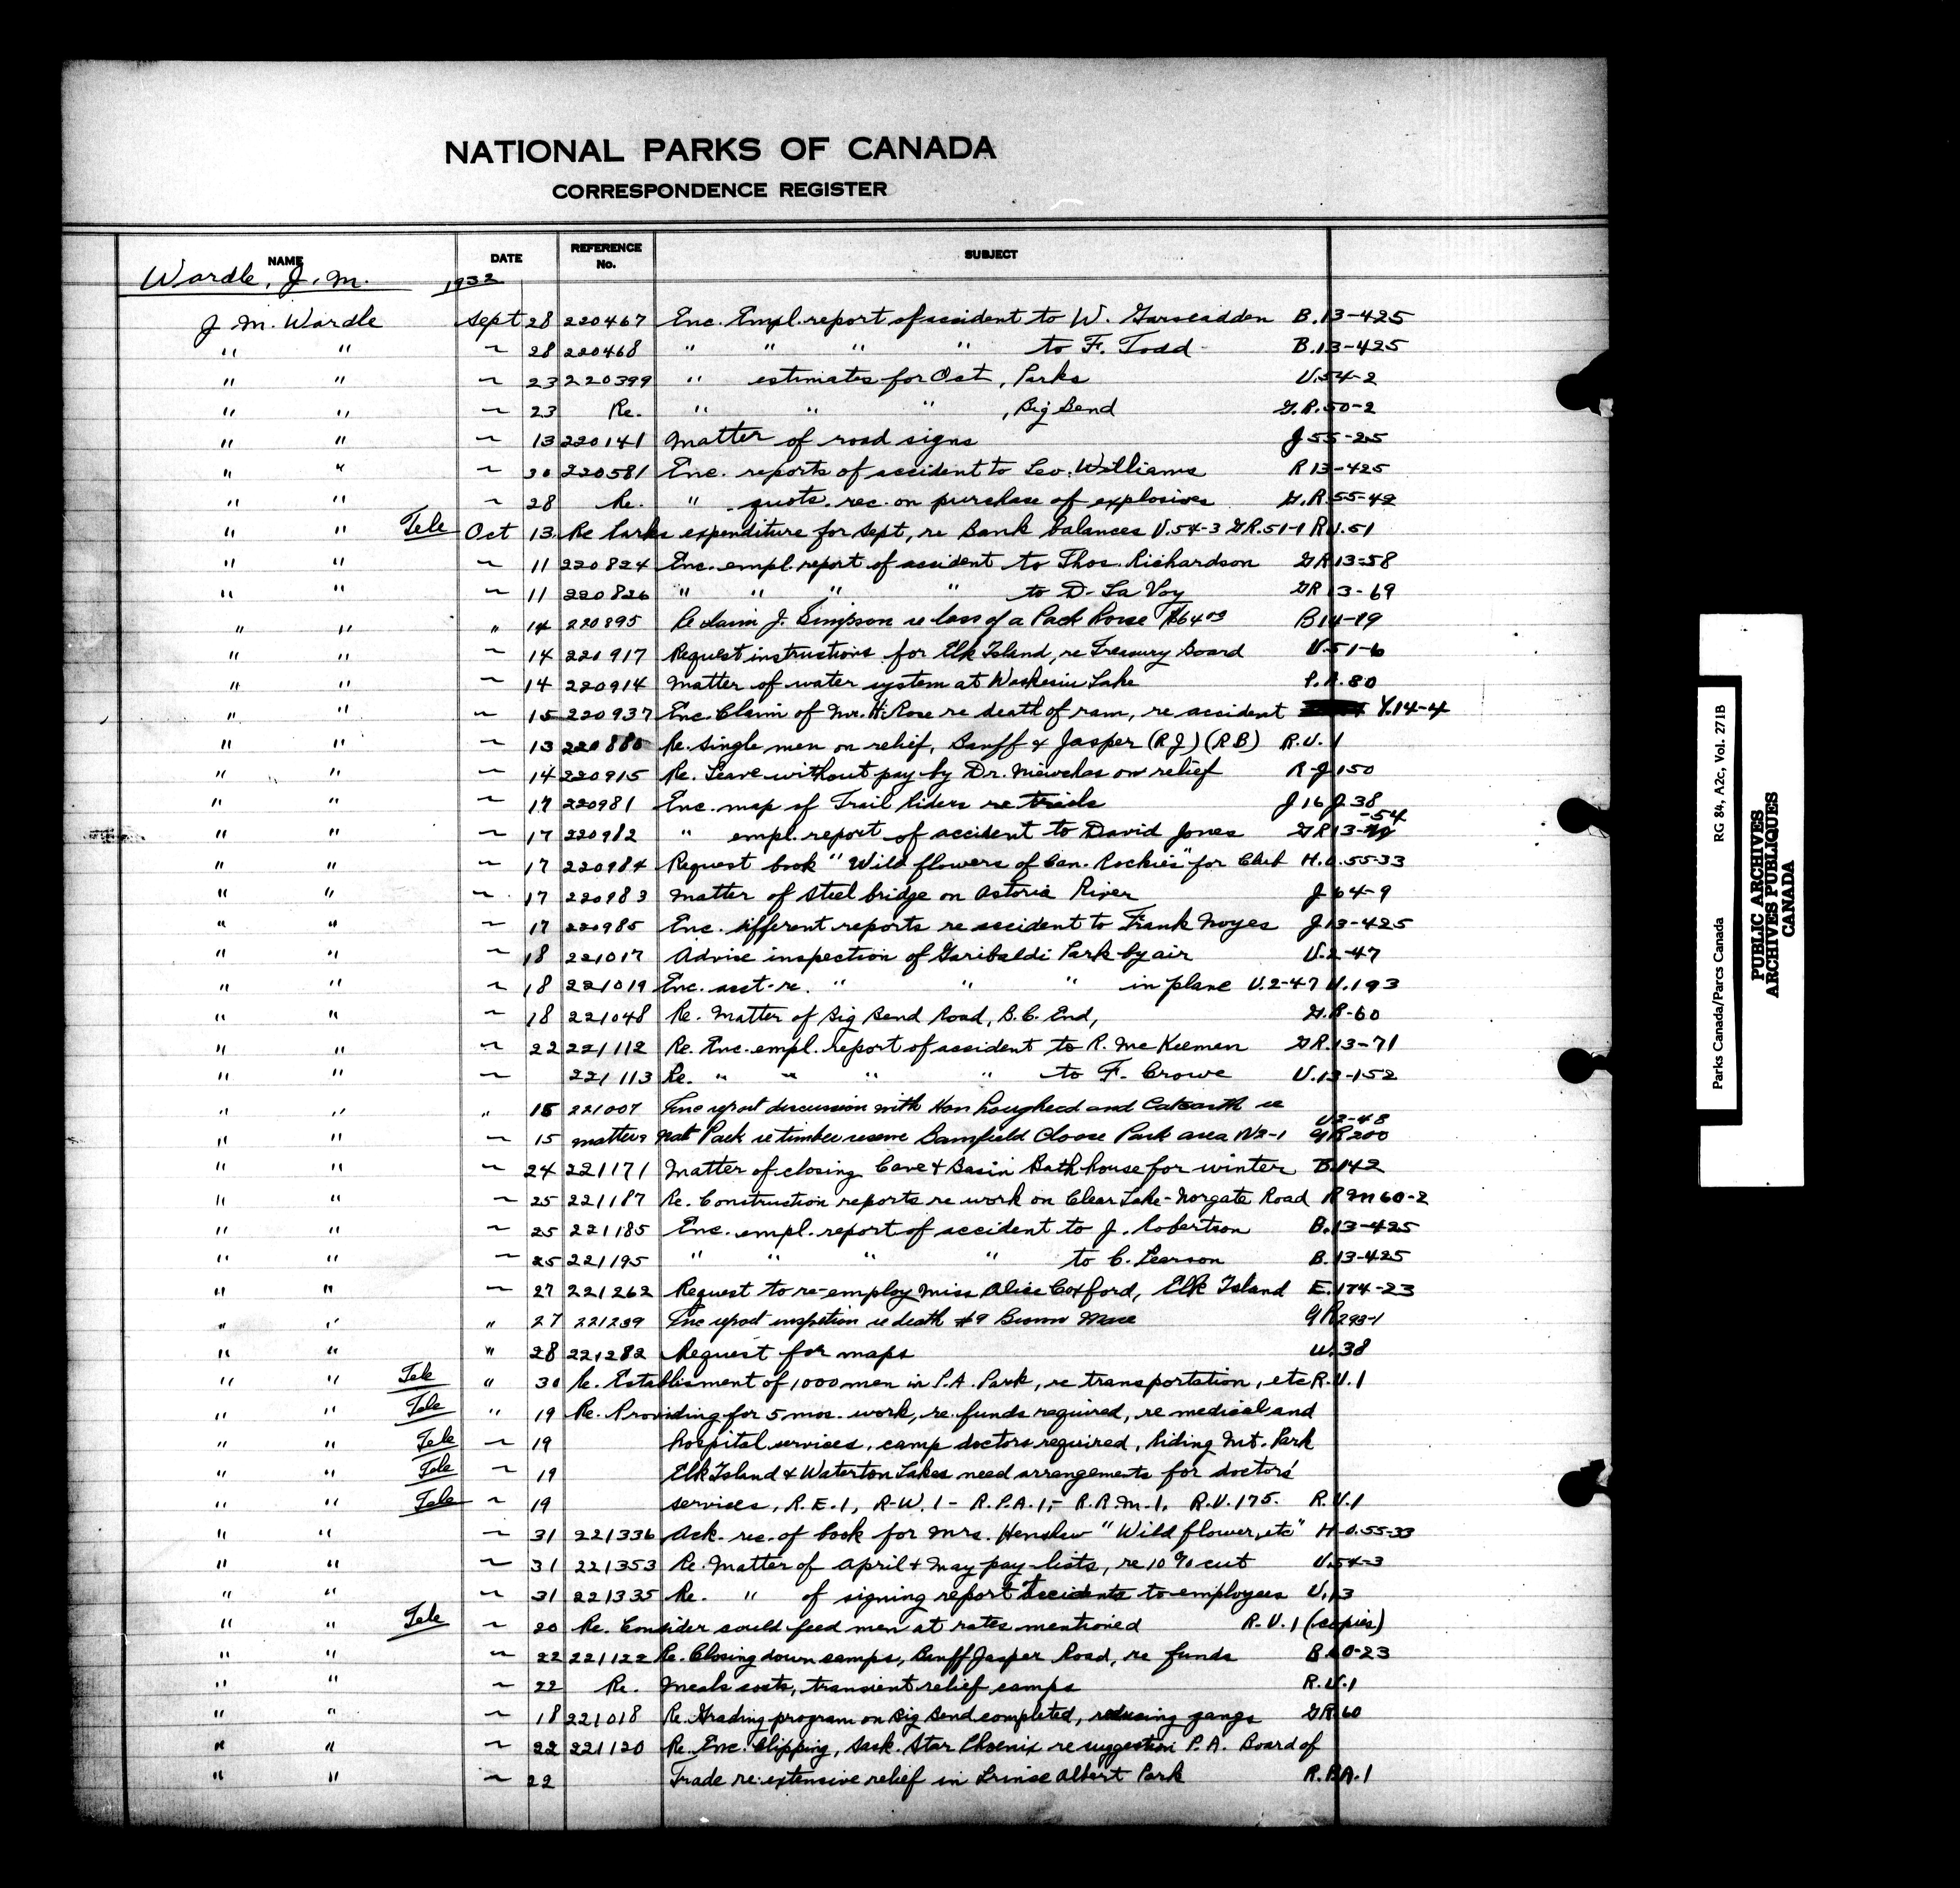 NATIONAL PARKS OF CANADA
CORRESPONDENCE REGISTER
NAME DATE REFERENCE No. SUBJECT
Wardle, J. M. 1932
J. M. Wardle Sept 28 220467 Enc. Empl. report of accident to W. Garscadden B.13-425
" " ~ 28 220468 " " " " to F. Todd B.13-425
" " ~ 23 220399 " estimates for Oct, Parks U.54-2
" " ~ 23 Re. " " " , Big Bend G.R.50-2
" " ~ 13 220141 Matter of road signs J 55-25
" " ~ 30 220581 Enc. reports of accident to Leo. Williams R 13-425
" " ~ 28 Re. " quots. rec. on purchase of explosives G.R.55-42
" " Tele Oct 13 Re Parks expenditure for Sept, re Bank balances U.54-3 GR.51-1 RU.51
" " ~ 11 220824 Enc. empl. report of accident to Thos. Richardson GR 13-58
" " ~ 11 220826 " " " " to D. La Voy GR 13-69
" " " 14 220895 Re claim J. Simpson re loss of a Pack horse B14-19
" " ~ 14 220917 Request instructions for Elk Island, re Treasury Board U.51-6
" " ~ 14 220914 Matter of water system at Waskesiu Lake P.A.80
" " ~ 15 220937 Enc. Claim of Mr. H. Rose re death of ram, re accident Y.14-4
" " ~ 13 220880 Re. Single men on relief, Banff & Jasper (RJ) (RB) R.U.1
" " ~ 14 220915 Re. Leave without pay by Dr. on relief R-J 150
" " ~ 17 220981 Enc. map of Trail Riders re trails J 16 J 38
" " ~ 17 220982 " empl. report of accident to David Jones GR 13-54
" " ~ 17 220984 Request book "Wild flowers of Can. Rockies" for Club H.O.55-33
" " ~ 17 220983 Matter of Steel bridge on Astoria River J 64-9
" " ~ 17 220985 Enc. different reports re accident to Frank Noyes J 13-425
" " ~ 18 221017 Advise inspection of Garibaldi Park by air U.2-47
" " ~ 18 221019 Enc. acct. re. " " " in plane U.2-47 U.193
" " ~ 18 221048 Re. Matter of Big Bend Road, B.C. End, G.R-60
" " ~ 22 221112 Re. Enc. empl. report of accident to R. McKeeman GR.13-71
" " ~ 221113 Re. " " " " to F. Crowe U.13-152
" " " 15 221007 Enc report discussion with Hon Lougheed and re
U2-48
" " ~ 15 matters Nat Park re timber reserve Bamfield Park area GR200
" " ~ 24 221171 Matter of closing Cave & Basin Bath house for winter B.142
" " ~ 25 221187 Re. Construction reports re work on Clear Lake-Norgate Road RM 60-2
" " ~ 25 221185 Enc. empl. report of accident to J. Robertson B.13-425
" " ~ 25 221195 " " " " to C. Pearson B.13-425
" " ~ 27 221262 Request to re-employ Miss Alice Coxford, Elk Island E.174-23
" " " 27 221239 Enc report inspection re death #9 Brown Mare GR293-1
" " " 28 221282 Request for maps U.38
" " Tele " 30 Re. Establisment of 1000 men in P.A. Park, re transportation, etc R.U.1
" " Tele " 19 Re. Providing for 5 mos. work, re. funds required, re medical and
" " Tele ~ 19 hospital services, camp doctors required, Riding Mt. Park
" " Tele ~ 19 Elk Island & Waterton Lakes need arrangements for doctors'
" " Tele ~ 19 services, R.E.1, R-W.1 - R.P.A.1, - R.R.M.1, R.U.175. R.U.1
" " ~ 31 221336 Ack. rec. of book for Mrs. Henshaw "Wild flower, etc" H-O.55-33
" " ~ 31 221353 Re. Matter of April & May pay-lists, re 10% cut U.54-3
" " ~ 31 221335 Re. " of signing report accidents to employees U.13
" " Tele ~ 20 Re. Consider could feed men at rates mentioned R.U.1 (copies)
" " ~ 22 221122 Re. Closing down camps, Banff Jasper Road, re funds B.60-23
" " ~ 22 Re. Meals costs, transient relief camps R.U.1
" " ~ 18 221018 Re. Grading program on Big Bend completed, reducing gangs GR 60
" " ~ 22 221120 Re. Enc. Clipping, Sask. Star Phoenix re suggestion P.A. Board of
" " ~ 22 Trade re extensive relief in Prince Albert Park R.PA.1
Parks Canada/Parcs Canada RG 84, A2c, Vol. 271B
PUBLIC ARCHIVES
ARCHIVES PUBLIQUES
CANADA